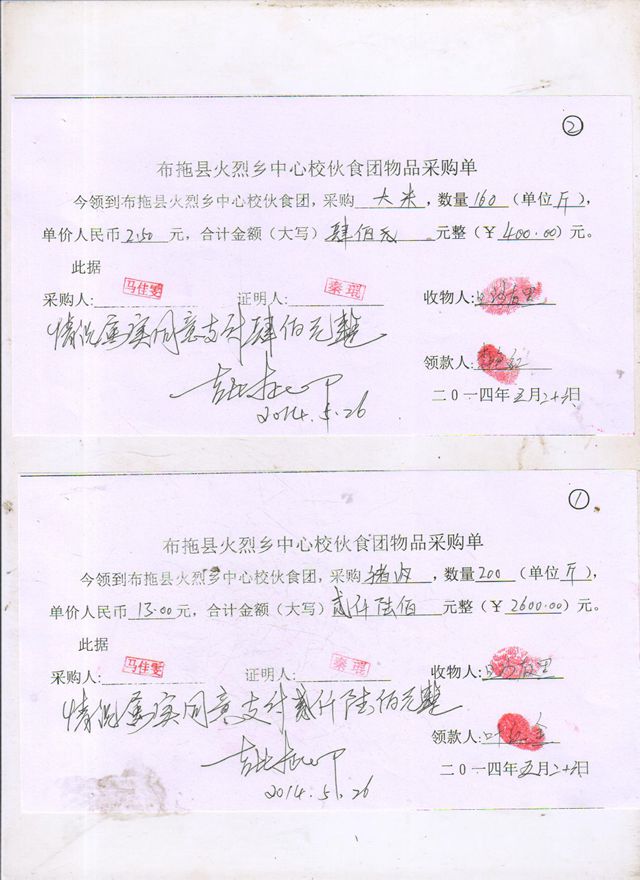 ②
布拖县火烈乡中心校伙食团物品采购单
今领到布拖县火烈乡中心校伙食团，采购 大米 ，数量 160 （单位 斤 ），
单价人民币 2.50 元，合计金额（大写） 肆佰元 元整（￥ 400.00 ）元。
此据
采购人： 马佳雯 证明人： 秦琨 收物人：
情况属实同意支付肆佰元整
领款人：
2014.5.26
二0一四年五月二十六日
①
布拖县火烈乡中心校伙食团物品采购单
今领到布拖县火烈乡中心校伙食团，采购 猪肉 ，数量 200 （单位 斤 ），
单价人民币 13.00 元，合计金额（大写） 贰仟陆佰 元整（￥ 2600.00 ）元。
此据
采购人： 马佳雯 证明人： 秦琨 收物人：
情况属实同意支付贰仟陆佰元整
领款人：
2014.5.26
二0一四年五月二十六日